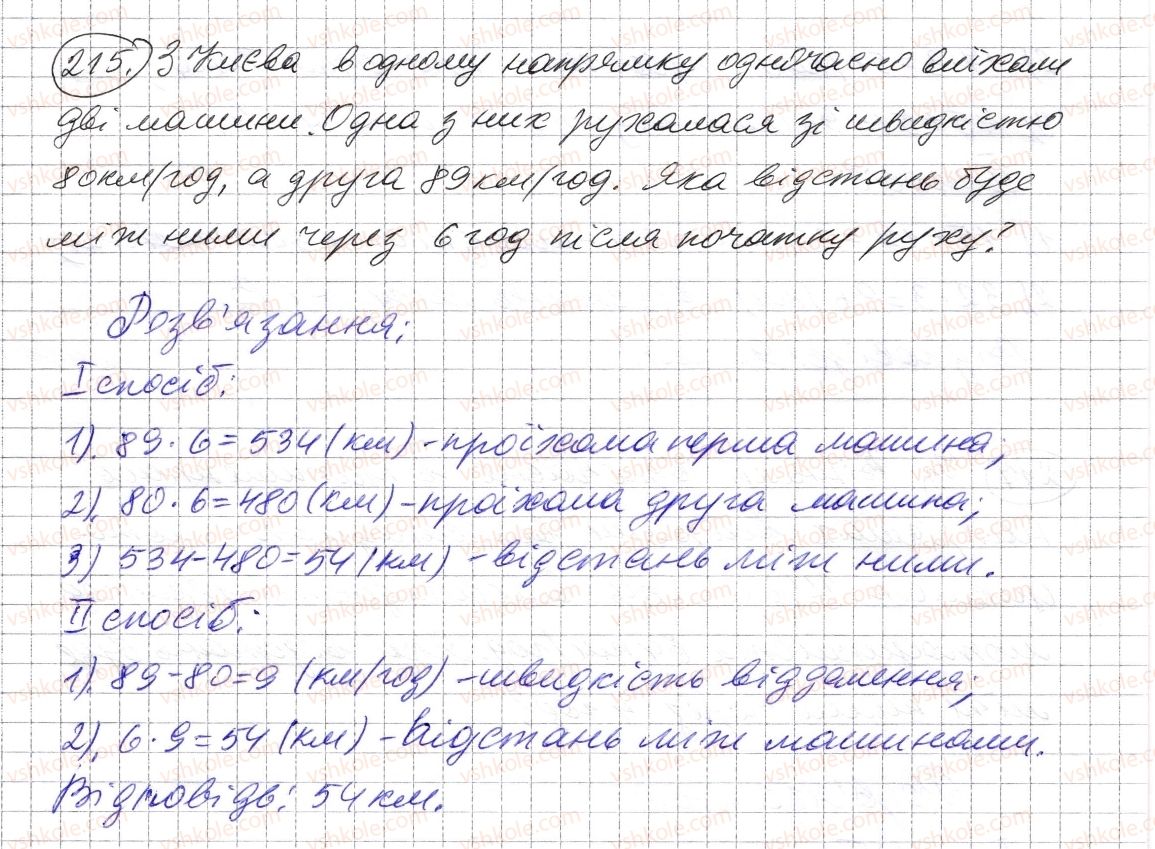 215. З Києва в одному напрямку одночасно виїхали
дві машини. Одна з них рухалася зі швидкістю
80км/год, а друга 89км/год. Яка відстань буде
між ними через 6 год після початку руху?
Розв'язання:
I спосіб:
1). 89 · 6 = 534 (км) - проїхала перша машина;
2). 80 · 6 = 480 (км) - проїхала друга машина;
3) 534 - 480 = 54 (км) - відстань між ними.
II спосіб:
1). 89 - 80 = 9 (км/год) - швидкість віддалення;
2). 6 · 9 = 54 (км) - відстань між машинами.
Відповідь: 54 км.